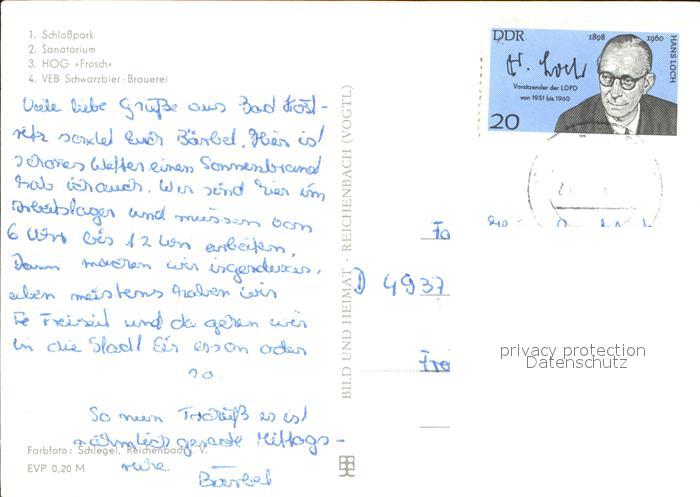 1. Schloßpark
2. Sanatorium
3. HOG »Frosch«
4. VEB Schwarzbier-Brauerei
Viele liebe Grüße aus Bad Köst-
ritz sendet Euch Bärbel. Hier ist
schönes Wetter, einen Sonnenbrand
hab ich auch. Wir sind hier im
Arbeitslager und müssen von
6 Uhr bis 12 Uhr arbeiten.
Dann machen wir irgendwas,
aber meistens haben wir
Freizeit und da gehen wir
in die Stadt Eis essen oder
so.
So nun Tschüß es ist
nähmlich gerade Mittags-
ruhe.
Bärbel
Farbfoto: Schlegel, Reichenbach i. V.
EVP 0,20 M
BILD UND HEIMAT · REICHENBACH (VOGTL)
DDR 1898 1960
HANS LOCH
H. Loch
Vorsitzender der LDPD
von 1951 bis 1960
20
Fa
D 4937
privacy protection
Datenschutz